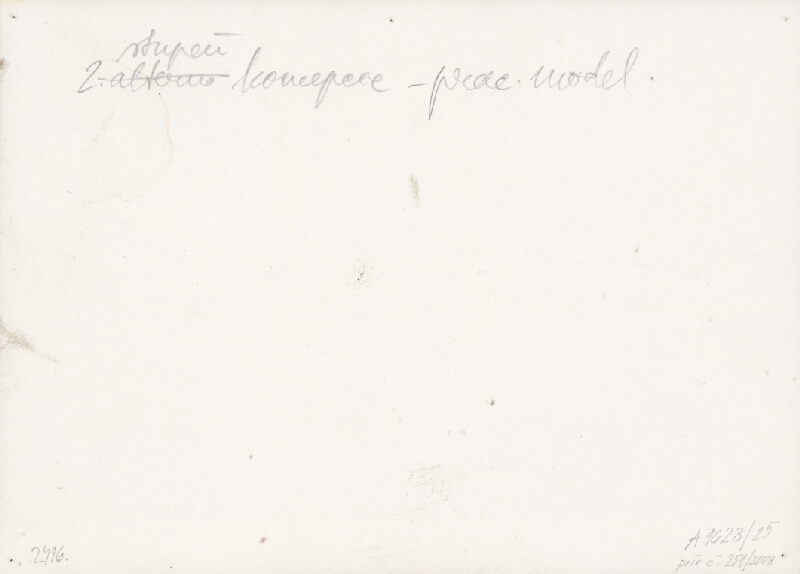 stupeň
2. altern koncepce – prac. model.
2416.
A 1623/25
přír č. 251/2008